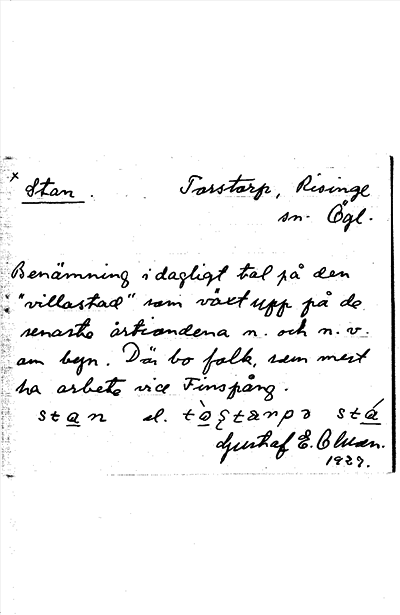 x Stan. Torstorp, Risinge
sn. Ögl.
Benämning i dagligt tal på den
"villastad" som växt upp på de
senaste årtiondena n. och n.v.
om byn. Där bo folk, som mest
ha arbete vid Finspång.
stan el. stá
Gustaf E. Olsson.
1927.